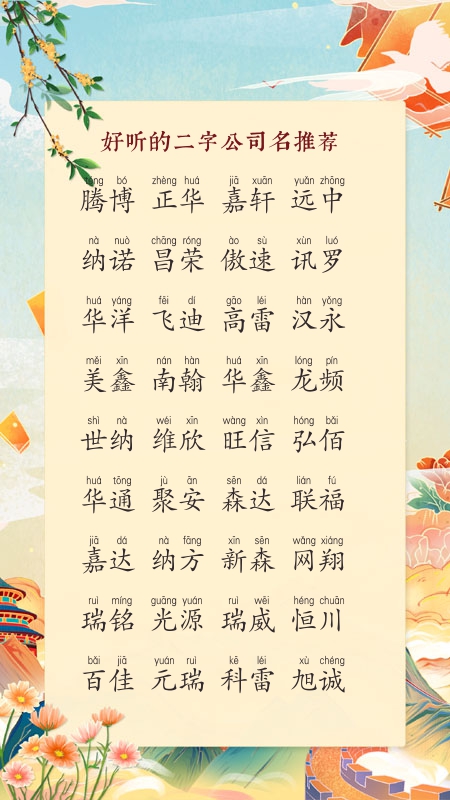 好听的二字公司名推荐
téng bó zhèng huá jiā xuān yuǎn zhōng
腾博 正华 嘉轩 远中
nà nuò chāng róng ào sù xùn luó
纳诺 昌荣 傲速 讯罗
huá yáng fēi dí gāo léi hàn yǒng
华洋 飞迪 高雷 汉永
měi xīn nán hàn huá xīn lóng pín
美鑫 南翰 华鑫 龙频
shì nà wéi xīn wàng xìn hóng bǎi
世纳 维欣 旺信 弘佰
huá tōng jù ān sēn dá lián fú
华通 聚安 森达 联福
jiā dá nà fāng xīn sēn wǎng xiáng
嘉达 纳方 新森 网翔
ruì míng guāng yuán ruì wēi héng chuān
瑞铭 光源 瑞威 恒川
bǎi jiā yuán ruì kē léi xù chéng
百佳 元瑞 科雷 旭诚